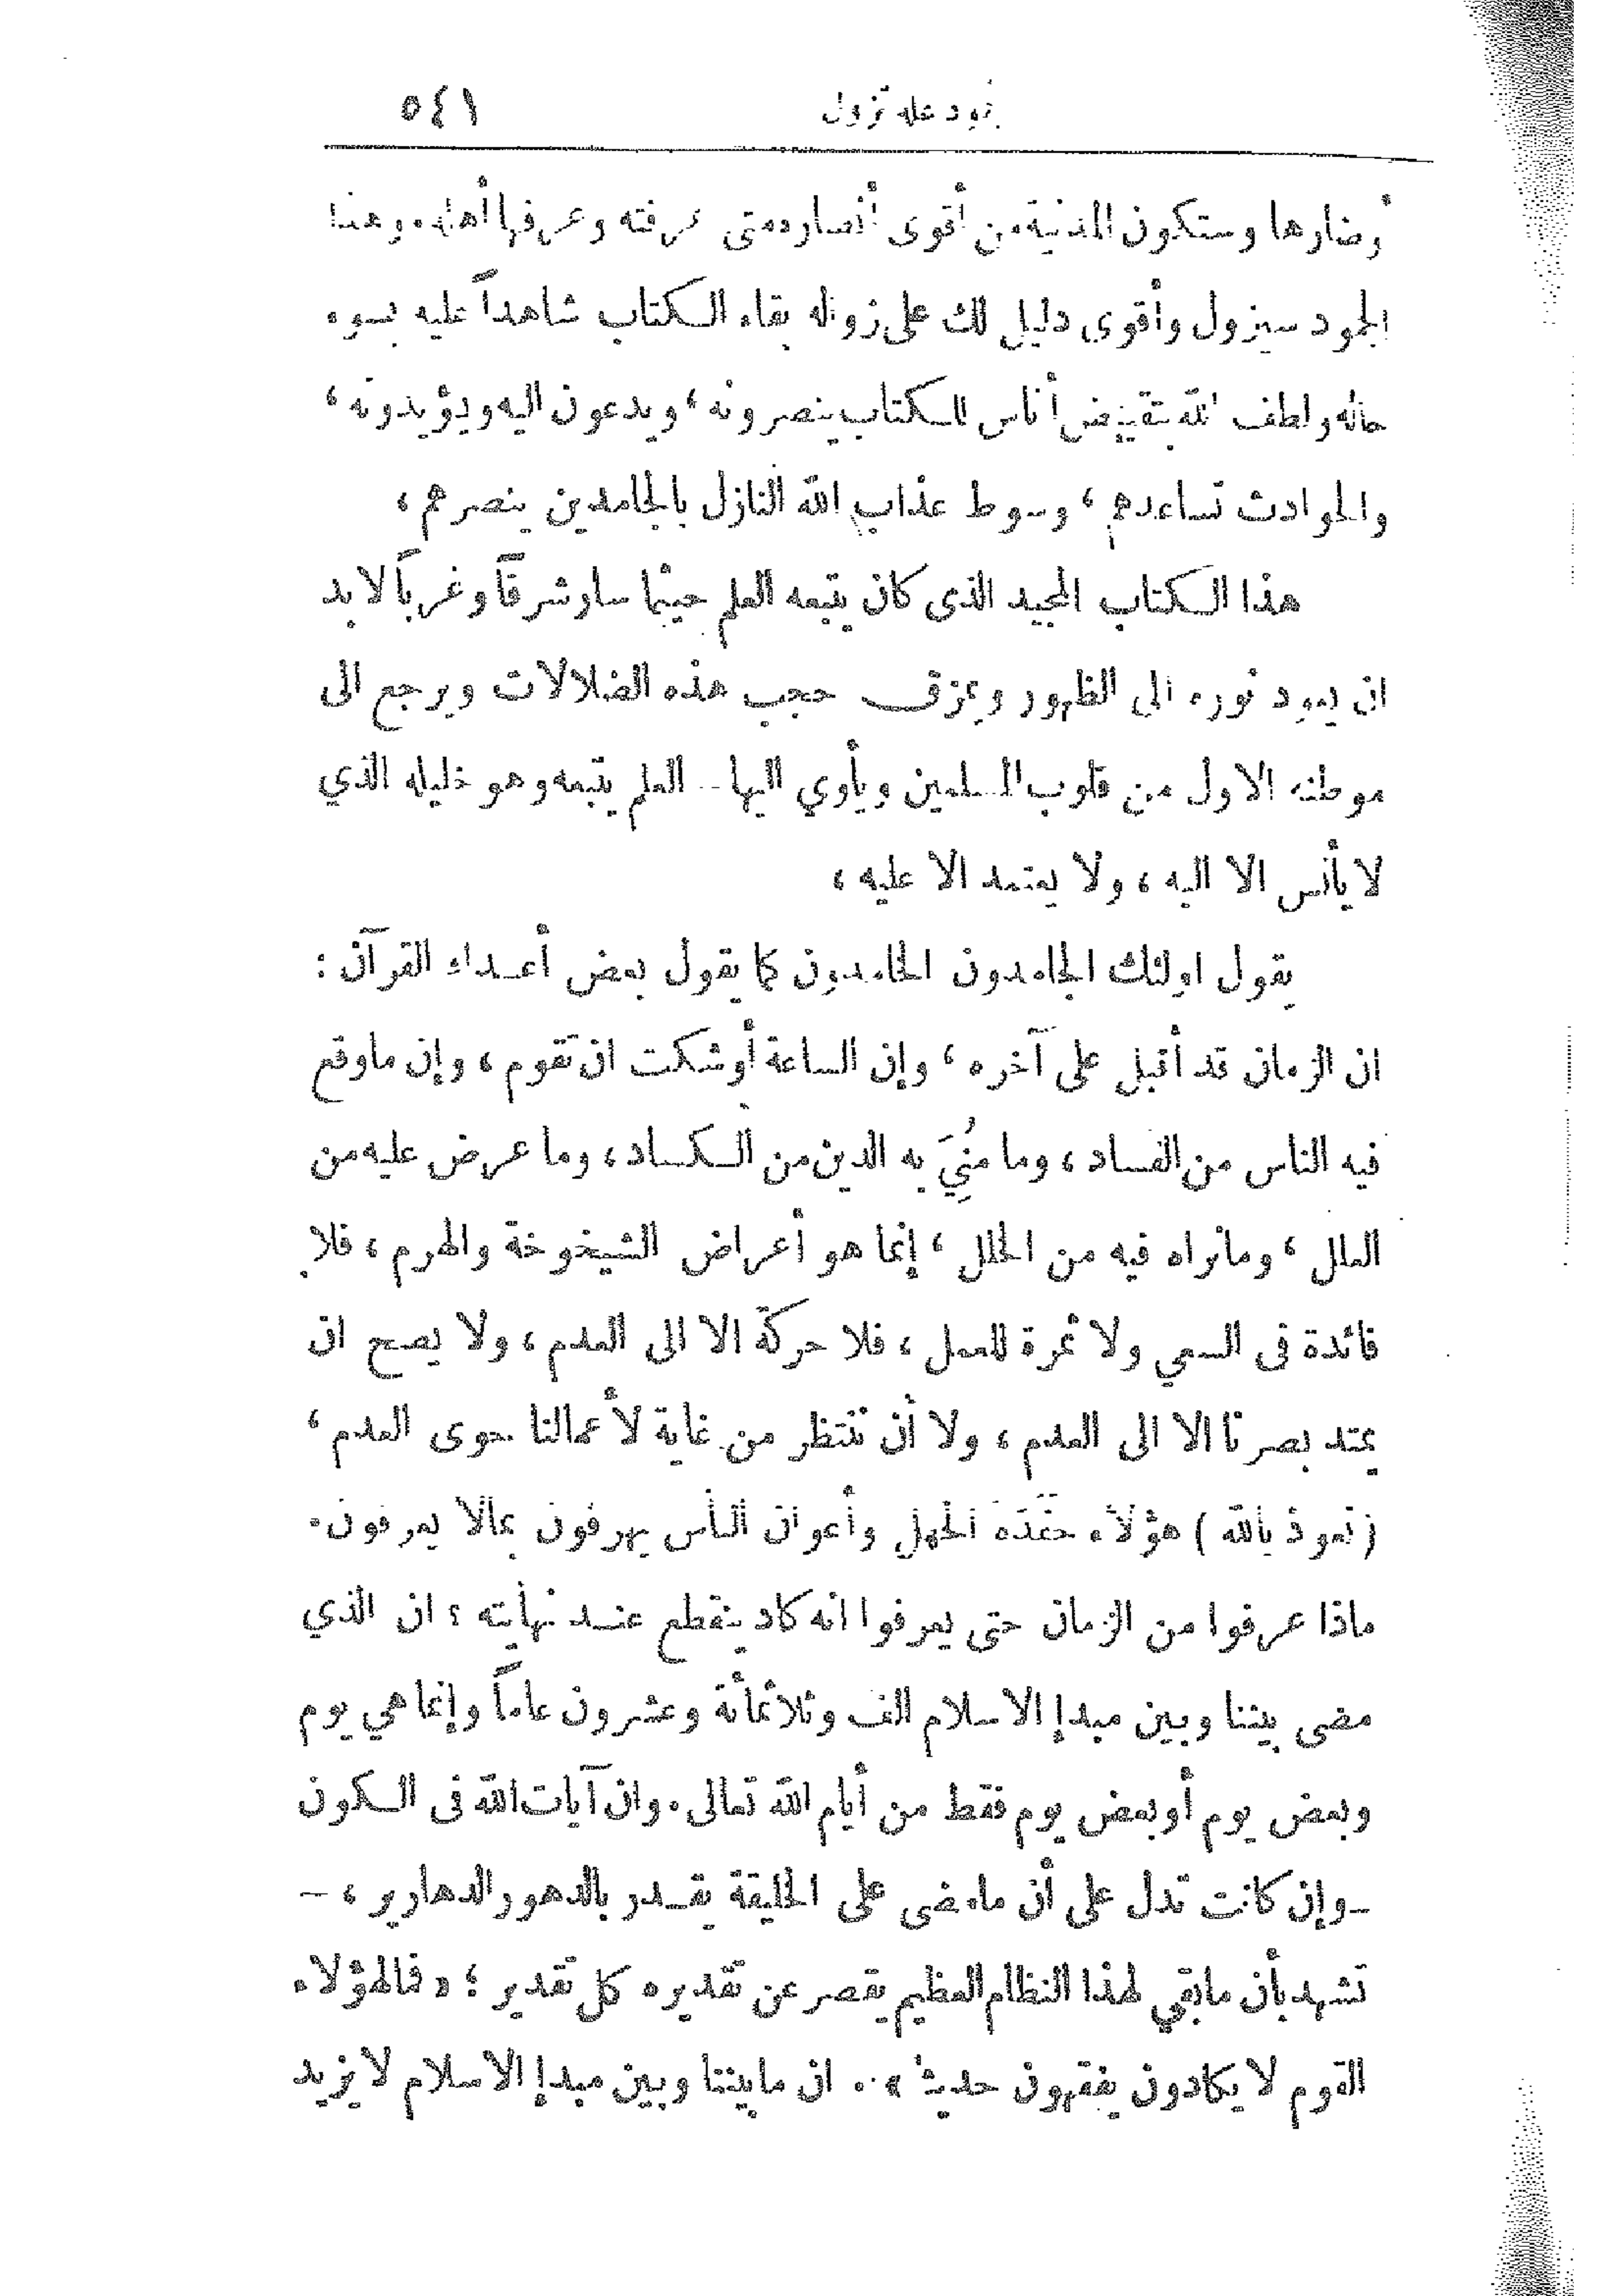 الجمود علة تزول ٥٤١
أوضارها وستكون المدنية من أقوى أنصاره متى عرفته وعرفها أهله. وهذا
الجمود سيزول وأقوى دليل لك على زواله بقاء الكتاب شاهداً عليه بسوء
حاله ولطف الله بتقييض أناس للكتاب ينصرونه، ويدعون اليه ويؤيدونه،
والحوادث تساعدهم، وسوط عذاب الله النازل بالجامدين ينصرهم،
هذا الكتاب المجيد الذى كان يتبعه العلم حيثما سار شرقاً وغرباً لا بد
ان يعود نوره الى الظهور ويمزق حجب هذه الضلالات ويرجع الى
موطنه الاول من قلوب المسلمين ويأوي اليها – العلم يتبعه وهو خليله الذي
لا يأنس الا اليه، ولا يعتمد الا عليه،
يقول اولئك الجامدون الخامدون كما يقول بعض أعداء القرآن:
ان الزمان قد أقبل على آخره، وإن الساعة أوشكت ان تقوم، وإن ما وقع
فيه الناس من الفساد، وما مُنِيَ به الدين من الكساد، وما عرض عليه من
العلل، وما نراه فيه من الخلل، إنما هو أعراض الشيخوخة والهرم، فلا
فائدة فى السعي ولا ثمرة للعمل، فلا حركة الا الى العدم، ولا يصح ان
يمتد بصرنا الا الى العدم، ولا أن ننتظر من غاية لأعمالنا سوى العدم،
(نعوذ بالله) هؤلاء حَفَدَة الجهل وأعوان اليأس يهرفون بمالا يعرفون.
ماذا عرفوا من الزمان حتى يعرفوا انه كاد ينقطع عند نهايته؟ ان الذي
مضى بيننا وبين مبدإ الاسلام الف وثلاثمائة وعشرون عاماً وإنما هي يوم
وبعض يوم أو بعض يوم فقط من أيام الله تعالى. وان آيات الله فى الكون
–وإن كانت تدل على أن ما مضى على الخليقة يقدر بالدهور الدهارير، –
تشهد بأن ما بقي لهذا النظام العظيم يقصر عن تقديره كل تقدير؛ «فما لهؤلاء
القوم لا يكادون يفقهون حديثا». ان ما بيننا وبين مبدإ الاسلام لا يزيد